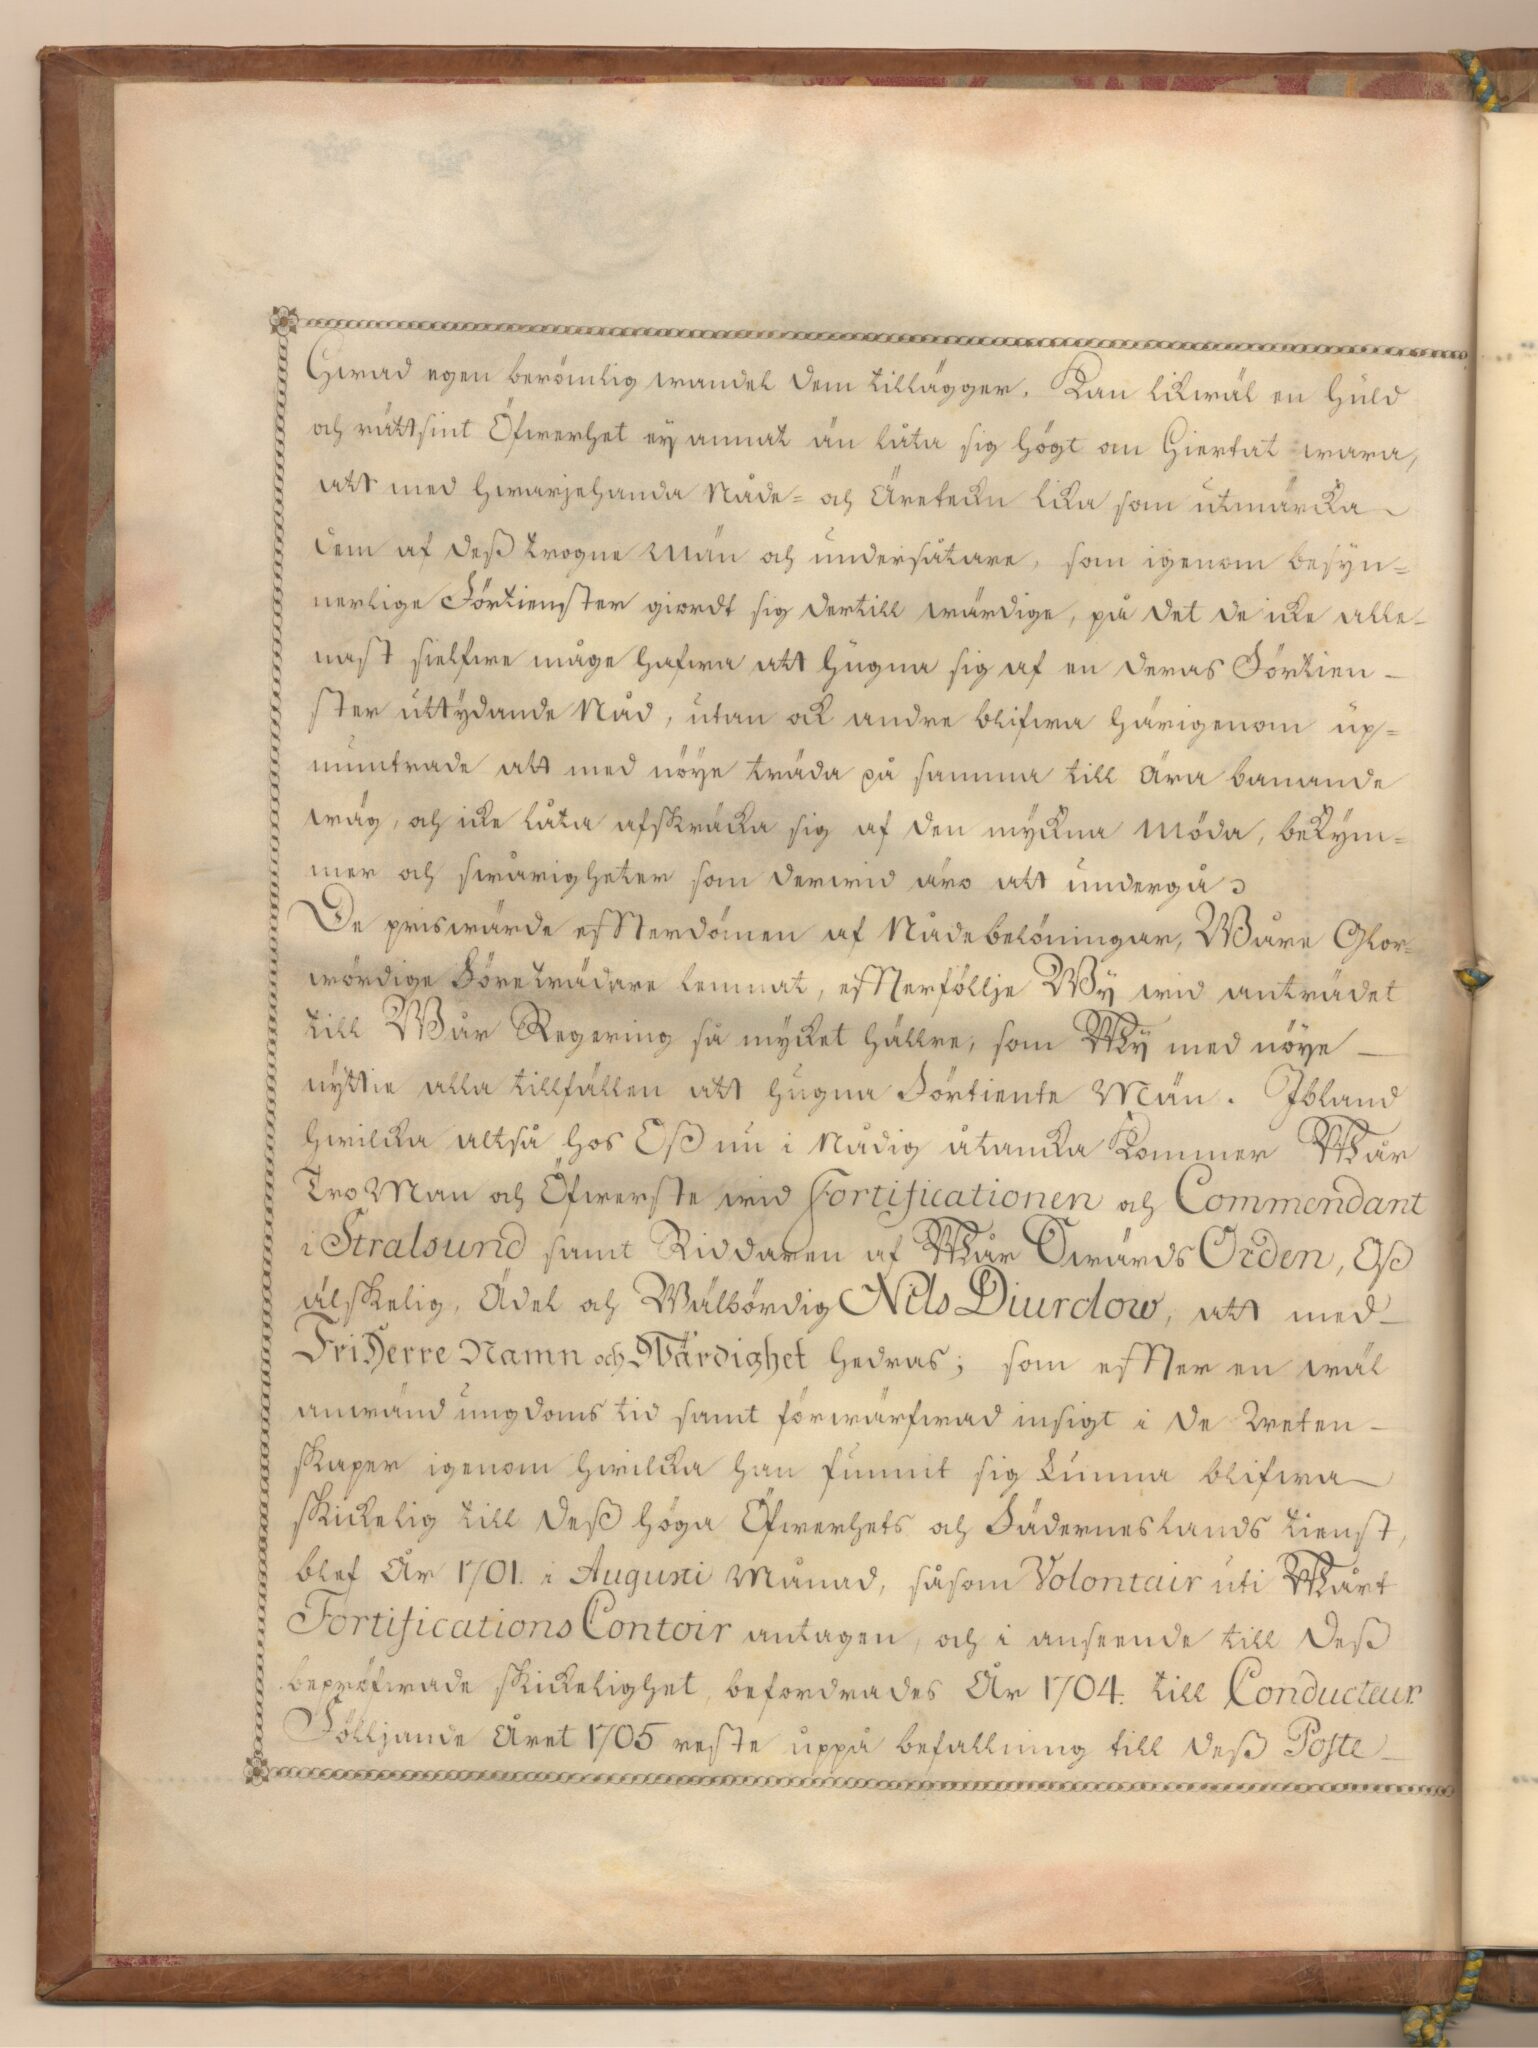 Hwad egen berömlig wandel dem tillägger. Kan likwäl en huld
och rättsint Öfwerhet ey annat än låta sig högt om Hiertat wara,
att med hwarjehanda Nåde- och Äretekn lika som utmärcka
dem af deß trogne Män och undersåtare, som igenom besyn=
nerlige Förtienster giordt sig dertill wärdige, på det de icke alle-
nast sielfwe måge hafwa att hugna sig af en deras Förtien-
ster uttydande Nåd, utan ock andre blifwa härigenom up=
muntrade att med nöye träda på samma till Ära banande
wäg, och icke låta afskräcka sig af den myckna Möda, bekym=
mer och swårigheter som derwid äro att undergå.
De priswärde effterdömen af Nådebelöningar, Wåre Glor=
wördige Företrädare lemnat, effterföllje Wy wid anträdet
till Wår Regering så mycket hällre, som Wy med nöye
nyttie alla tillfällen att hugna Förtiente Män. Ibland
hwilcka altså hos Oß nu i Nådig åtancka kommer Wår
Tro Man och Öfwerste wid Fortificationen och Commendant
i Stralsund samt Riddaren af Wår Swärds Orden, Oß
älskelig, Ädel och Wälbördig Nils Diurclow, att med
FriHerre Namn och Wärdighet hedras; som effter en wäl
anwänd ungdoms tid samt förwärfwad insigt i de weten-
skaper igenom hwilcka han funnit sig kunna blifwa
skickelig till deß höga Öfwerhets och Fäderneslands tienst,
blef År 1701. i Augusti Månad, såsom Volontair uti Wårt
Fortifications Contoir antagen, och i anseende till deß
bepröfwade skickelighet, befordrades År 1704. till Conducteur
Följande Året 1705 reste uppå befallning till deß Poste